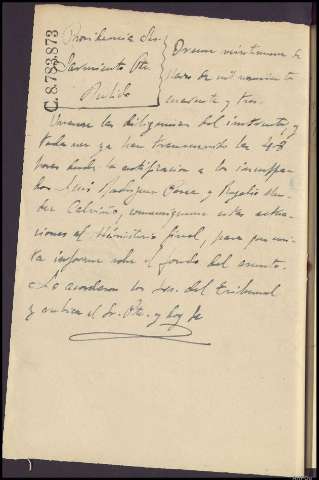 C.8.783.873
Providencia Srs
Sarmiento Pte.
Pulido
Orense veintinueve de
de mil novecientos
cuarenta y tres.
Únanse las diligencias del instructor, y
toda vez ya han transcurrido las 48
horas desde la notificación a los inculpa-
dos Luis Rodríguez y Rogelio
Calviño, comuníquense estas actua-
ciones al Ministerio fiscal, para que emi-
ta informe sobre el fondo del asunto.
Lo acordaron los Sres. del Tribunal
y rubrica el Sr. Pte. y doy fe